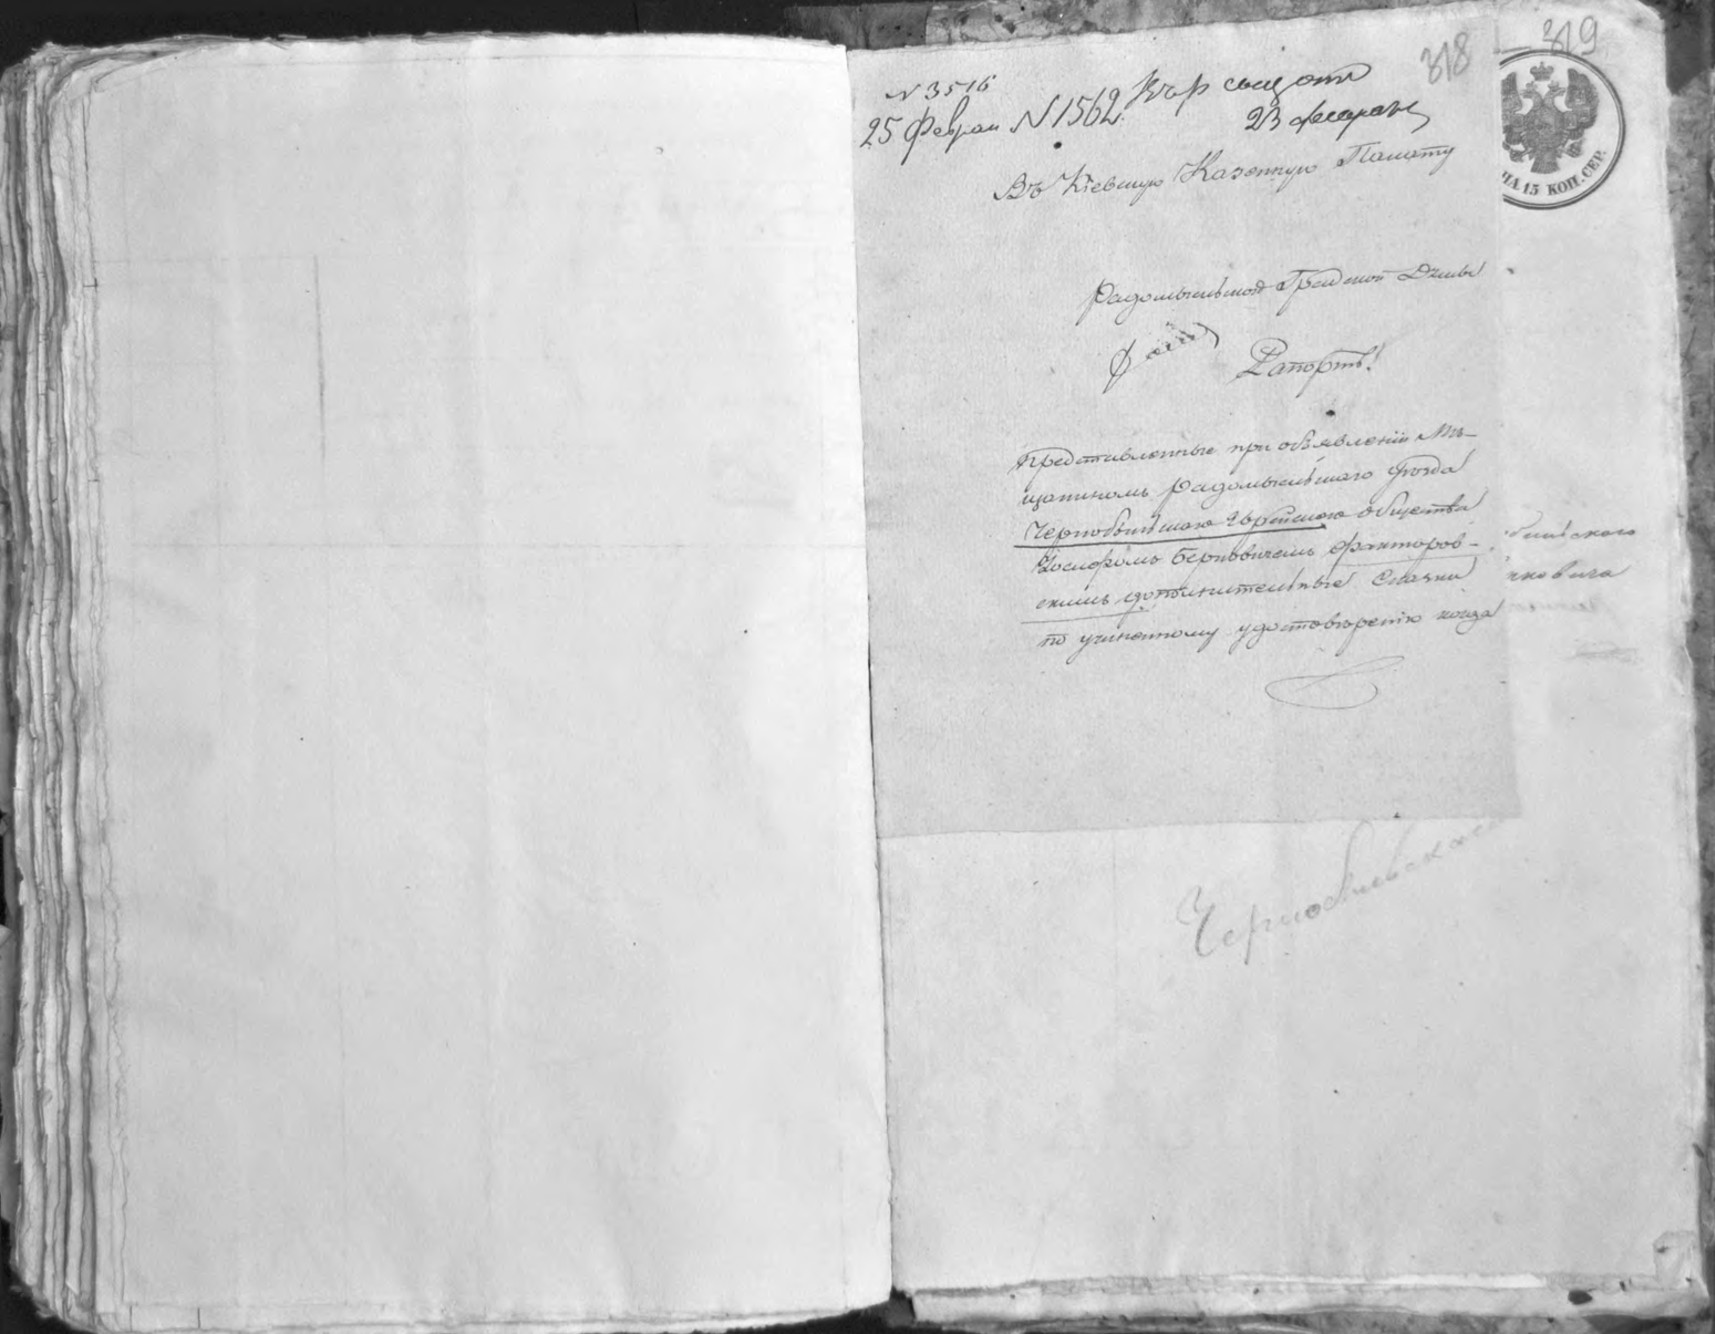 318
319
N 3516
25 Феврал N 1562
23 февраля
Въ Кіевскую Казенную Палату
Радомысльской Градской Думы
Рапортъ!
Представленные при объявленіи Мѣ-
щаниномъ Радомысльскаго уѣзда
Чернобыльскаго Еврейскаго общества
Іосифомъ Берковичемъ Факторов-
скимъ дополнительные Сказки
по учиненному удостовѣренію когда
15 КОП. СЕР.
Чернобыльскаго